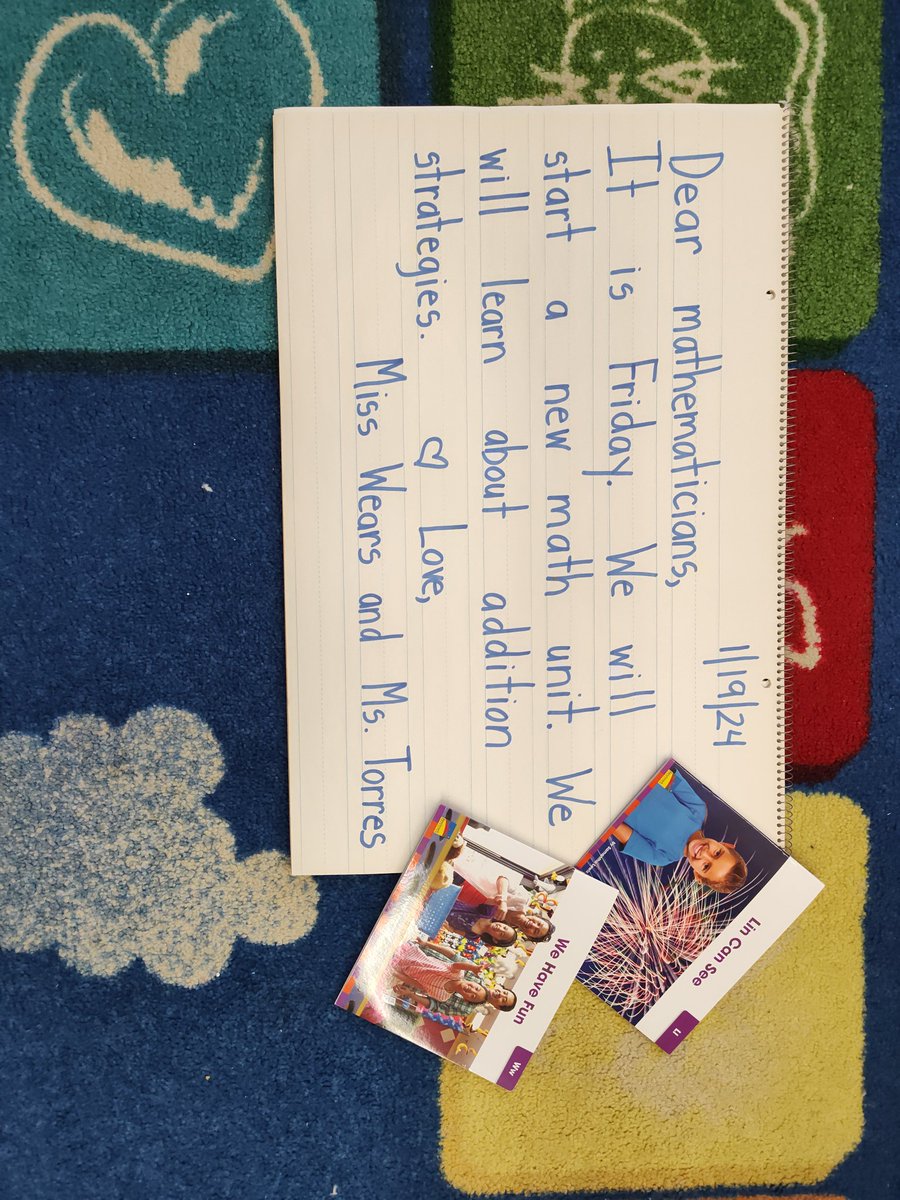 1/19/24
Dear mathematicians,
It is Friday. We will
start a new math unit. We
will learn about addition
strategies. ♡ Love,
Miss Wears and Ms. Torres
Lin Can See
Ll
We Have Fun
Ww